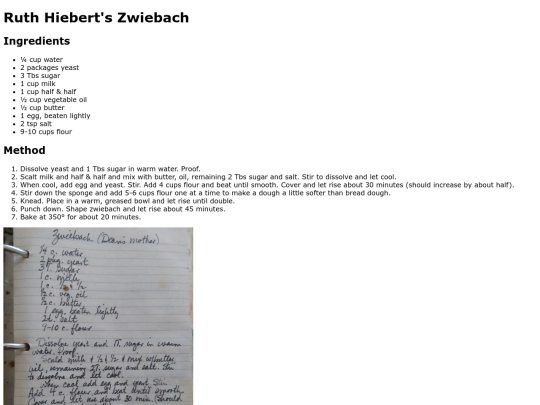 Ruth Hiebert's Zwiebach
Ingredients
• ¼ cup water
• 2 packages yeast
• 3 Tbs sugar
• 1 cup milk
• 1 cup half & half
• ½ cup vegetable oil
• ½ cup butter
• 1 egg, beaten lightly
• 2 tsp salt
• 9-10 cups flour
Method
1. Dissolve yeast and 1 Tbs sugar in warm water. Proof.
2. Scalt milk and half & half and mix with butter, oil, remaining 2 Tbs sugar and salt. Stir to dissolve and let cool.
3. When cool, add egg and yeast. Stir. Add 4 cups flour and beat until smooth. Cover and let rise about 30 minutes (should increase by about half).
4. Stir down the sponge and add 5-6 cups flour one at a time to make a dough a little softer than bread dough.
5. Knead. Place in a warm, greased bowl and let rise until double.
6. Punch down. Shape zwiebach and let rise about 45 minutes.
7. Bake at 350° for about 20 minutes.
Zwiebach (Dean's mother)
¼ c. water
2 pkg. yeast
3 T. sugar
1 c. milk
1 c. ½ & ½
½ c. veg. oil
½ c. butter
1 egg, beaten lightly
2 t. salt
9-10 c. flour
Dissolve yeast and 1 T. sugar in warm
water. Proof.
Scald milk & ½ & ½ & mix w/butter,
oil, remaining 2 T. sugar and salt. Stir
to dissolve and let cool.
When cool add egg and yeast. Stir.
Add 4 c. flour and beat until smooth.
Cover and let rise about 30 min. (should